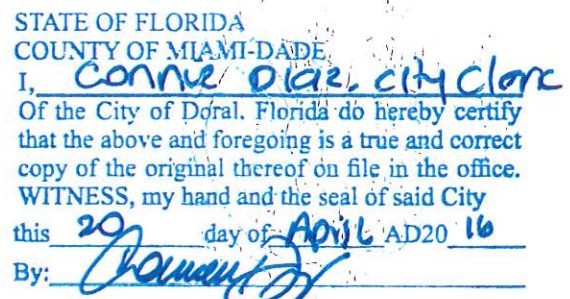 STATE OF FLORIDA
COUNTY OF MIAMI-DADE
I, Connie Diaz, City Clerk
Of the City of Doral. Florida do hereby certify
that the above and foregoing is a true and correct
copy of the original thereof on file in the office.
WITNESS, my hand and the seal of said City
this 20 day of April AD20 16
By: